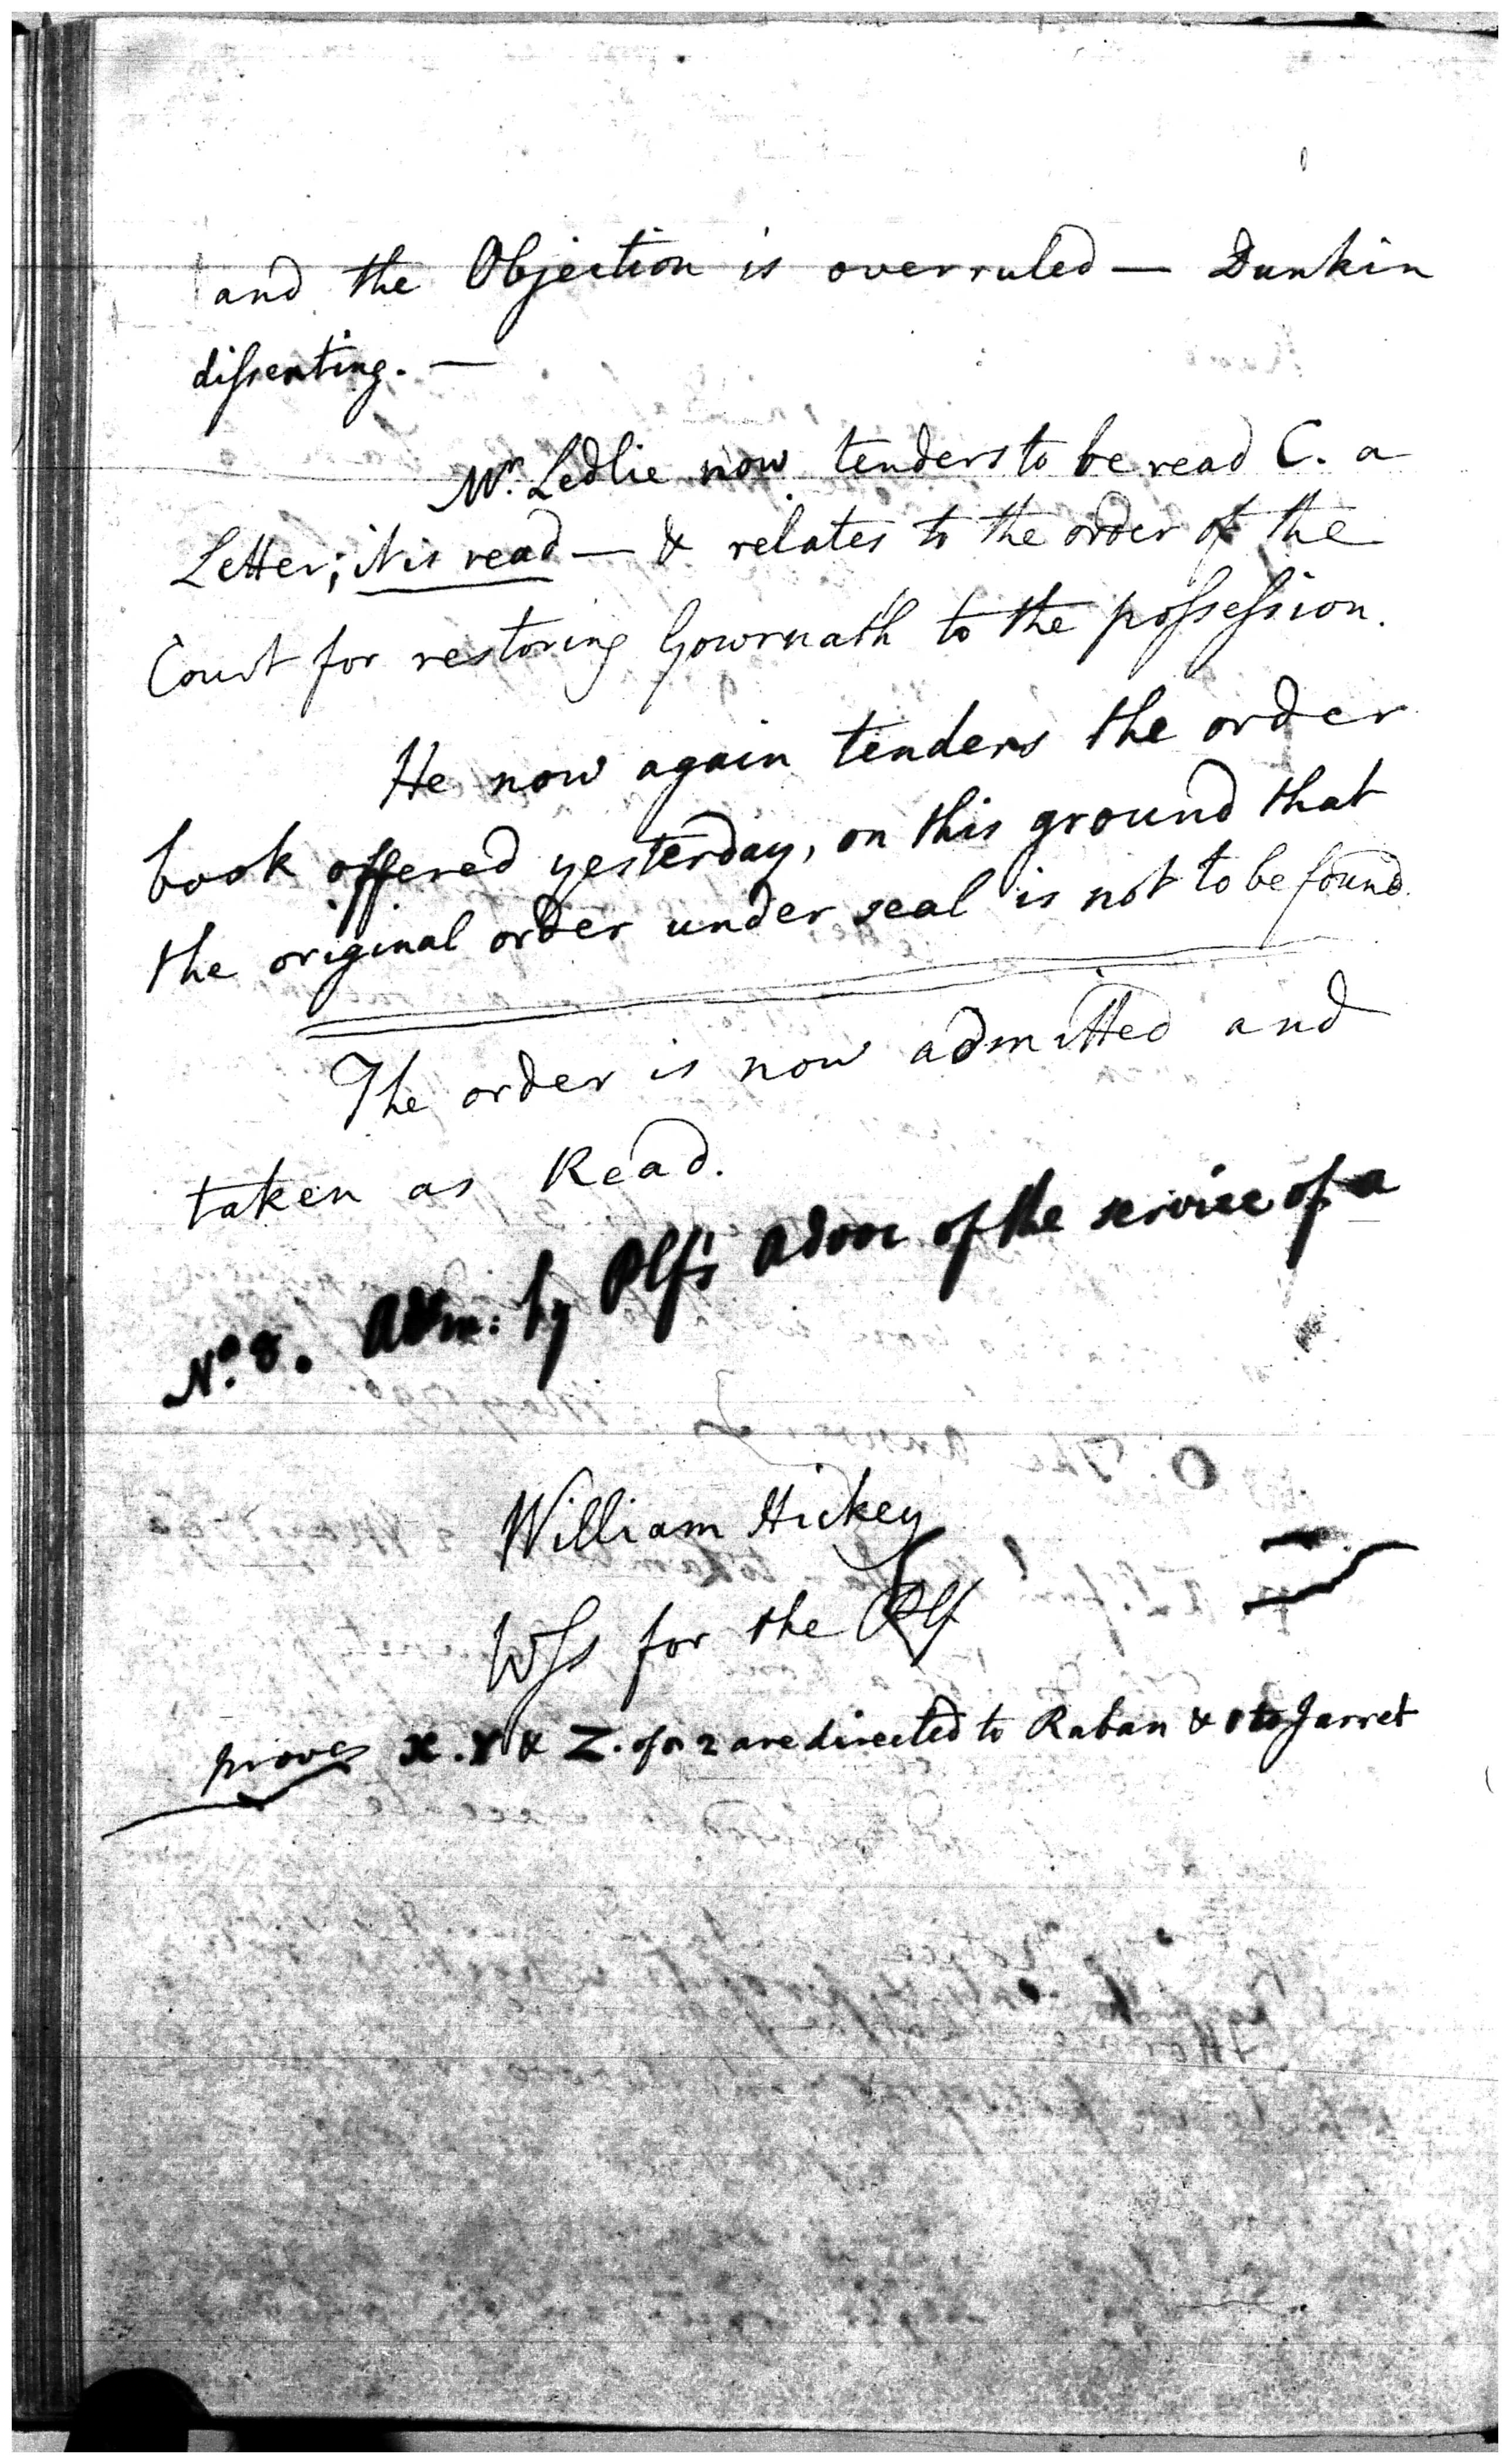 and the Objection is overruled — Dunkin
dissenting. —
Mr. Ledlie now tenders to be read C. a
Letter; it is read — & relates to the order of the
Court for restoring Gowrnath to the possession.
He now again tenders the order
book offered yesterday, on this ground that
the original order under seal is not to be found.
The order is now admitted and
taken as Read.
No. 8. Adm: by Plf's of the service of a
William Hickey
Wss for the Plf
proves X. Y & Z. 2 are directed to Raban & to Jarret